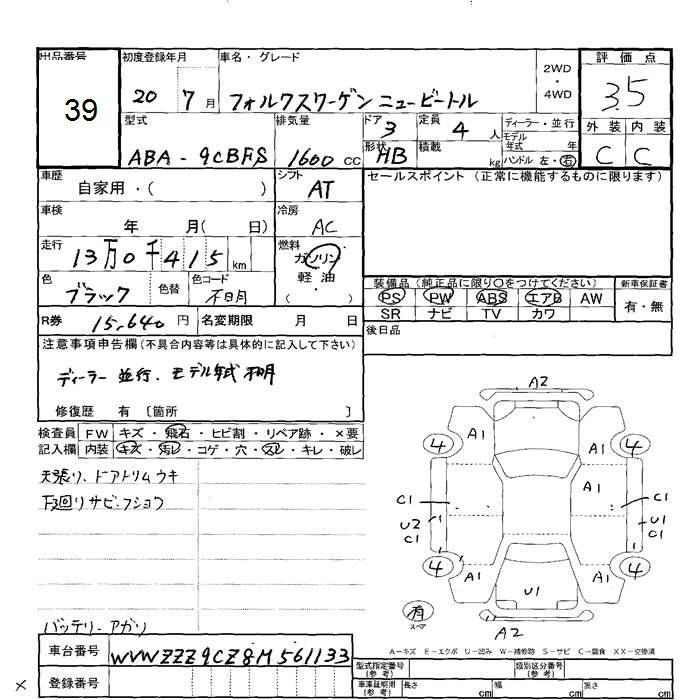 出品番号 39
初度登録年月 20 7月
車名・グレード フォルクスワーゲン ニュービートル
2WD・4WD
評価点 3.5
型式 ABA-9CBFS
排気量 1600cc
ドア 3
定員 4人
形状 HB
積載 kg
ディーラー・並行
モデル年式 年
ハンドル 左・右
外装 内装
C C
車歴 自家用・( )
シフト AT
セールスポイント(正常に機能するものに限ります)
車検 年 月( 日)
冷房 AC
走行 13万0千415km
燃料 ガソリン・軽油・( )
色 ブラック 色替
色コード 不明
装備品(純正品に限り○をつけてください)
PS PW ABS エアB AW
SR ナビ TV カワ
新車保証書
有・無
R券 15,640円
名変期限 月 日
後日品
注意事項申告欄(不具合内容等は具体的に記入して下さい)
ディーラー 並行、モデル年式 不明
修復歴 有〔箇所 〕
検査員記入欄
FW キズ・飛石・ヒビ割・リペア跡・×要
内装 キズ・汚レ・コゲ・穴・スレ・キレ・破レ
天張り、ドアトリム ウキ
下廻り サビ・フショク
バッテリーアガリ
A2
A1 A1
4 4
A1
C1 C1
U2 U1
C1 C1
4 4
A1 A1
U1
有
スペア
A2
A-キズ E-エクボ U-凹み W-補修跡 S-サビ C-腐食 XX-交換済
車台番号 WVWZZZ9CZ8M561133
登録番号
型式指定番号(参考) 類別区分番号(参考)
車庫証明用(参考) 長さ cm 幅 cm 高さ cm
×